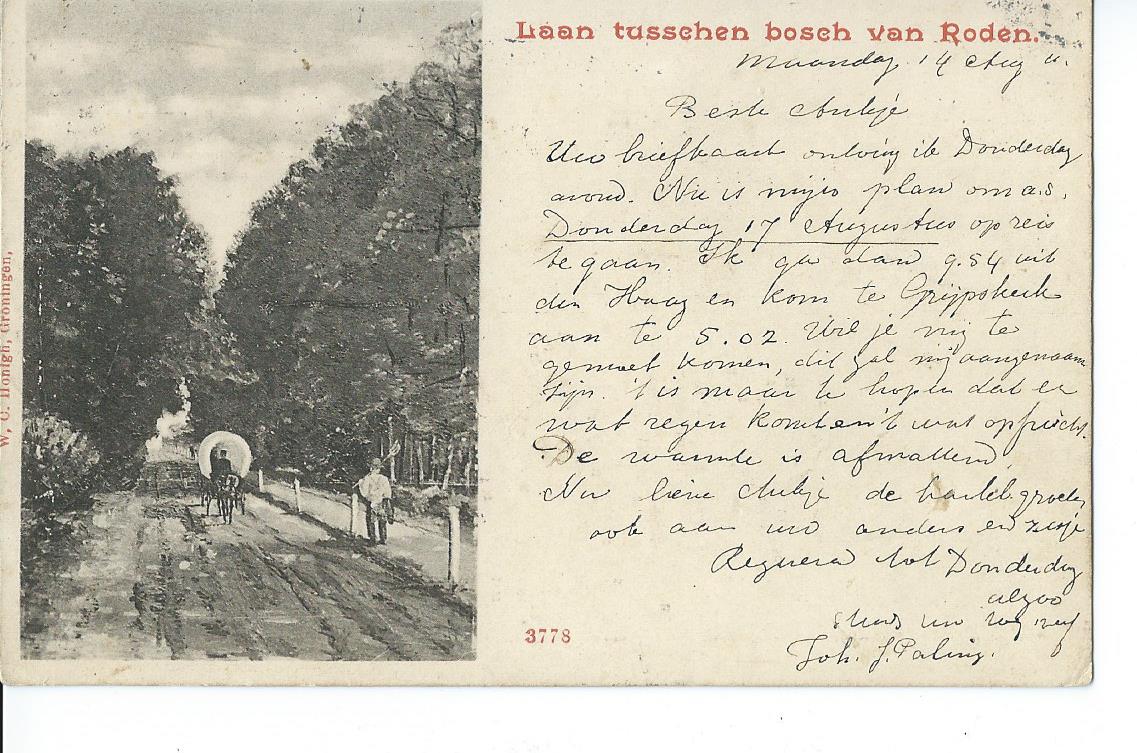 Laan tusschen bosch van Roden.
Maandag 14 Aug
Beste Aukje
Uw briefkaart ontving ik Donderdag
avond. Nu is mijn plan om a.s.
Donderdag 17 Augustus op reis
te gaan. Ik ga dan 9.54 uit
den Haag en kom te Grijpskerk
aan te 5.02. Wil je mij te
gemoet komen, dit zal mij aangenaam
zijn. 't is maar te hopen dat er
wat regen komt en 't wat opfrischt.
De warmte is afmattend.
Nu lieve Aukje de hartel. groeten
ook aan uw ouders en zusje
Regnera tot Donderdag
alzoo
steeds uw
Joh. J. Paling.
3778
W. C. Honigh, Groningen,